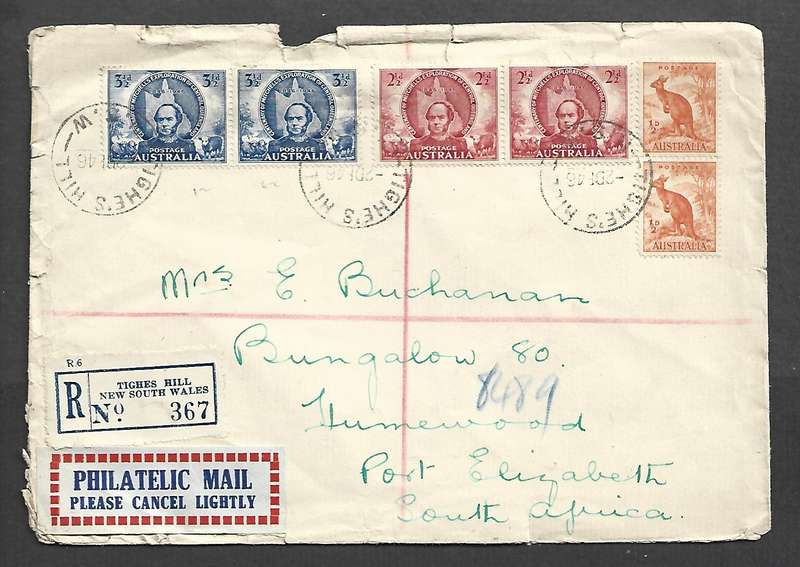 3½d 3½d
POSTAGE
AUSTRALIA
3½d 3½d
POSTAGE
AUSTRALIA
2½d 2½d
POSTAGE
AUSTRALIA
2½d 2½d
POSTAGE
AUSTRALIA
POSTAGE
½D
AUSTRALIA
½D
AUSTRALIA
TIGHE'S HILL
-2DE46
TIGHE'S HILL
-2DE46
TIGHE'S HILL
Mrs E. Buchanan
Bungalow 80.
8489
Humewood
Port Elizabeth
South Africa.
R6
R
TIGHES HILL
NEW SOUTH WALES
No 367
PHILATELIC MAIL
PLEASE CANCEL LIGHTLY